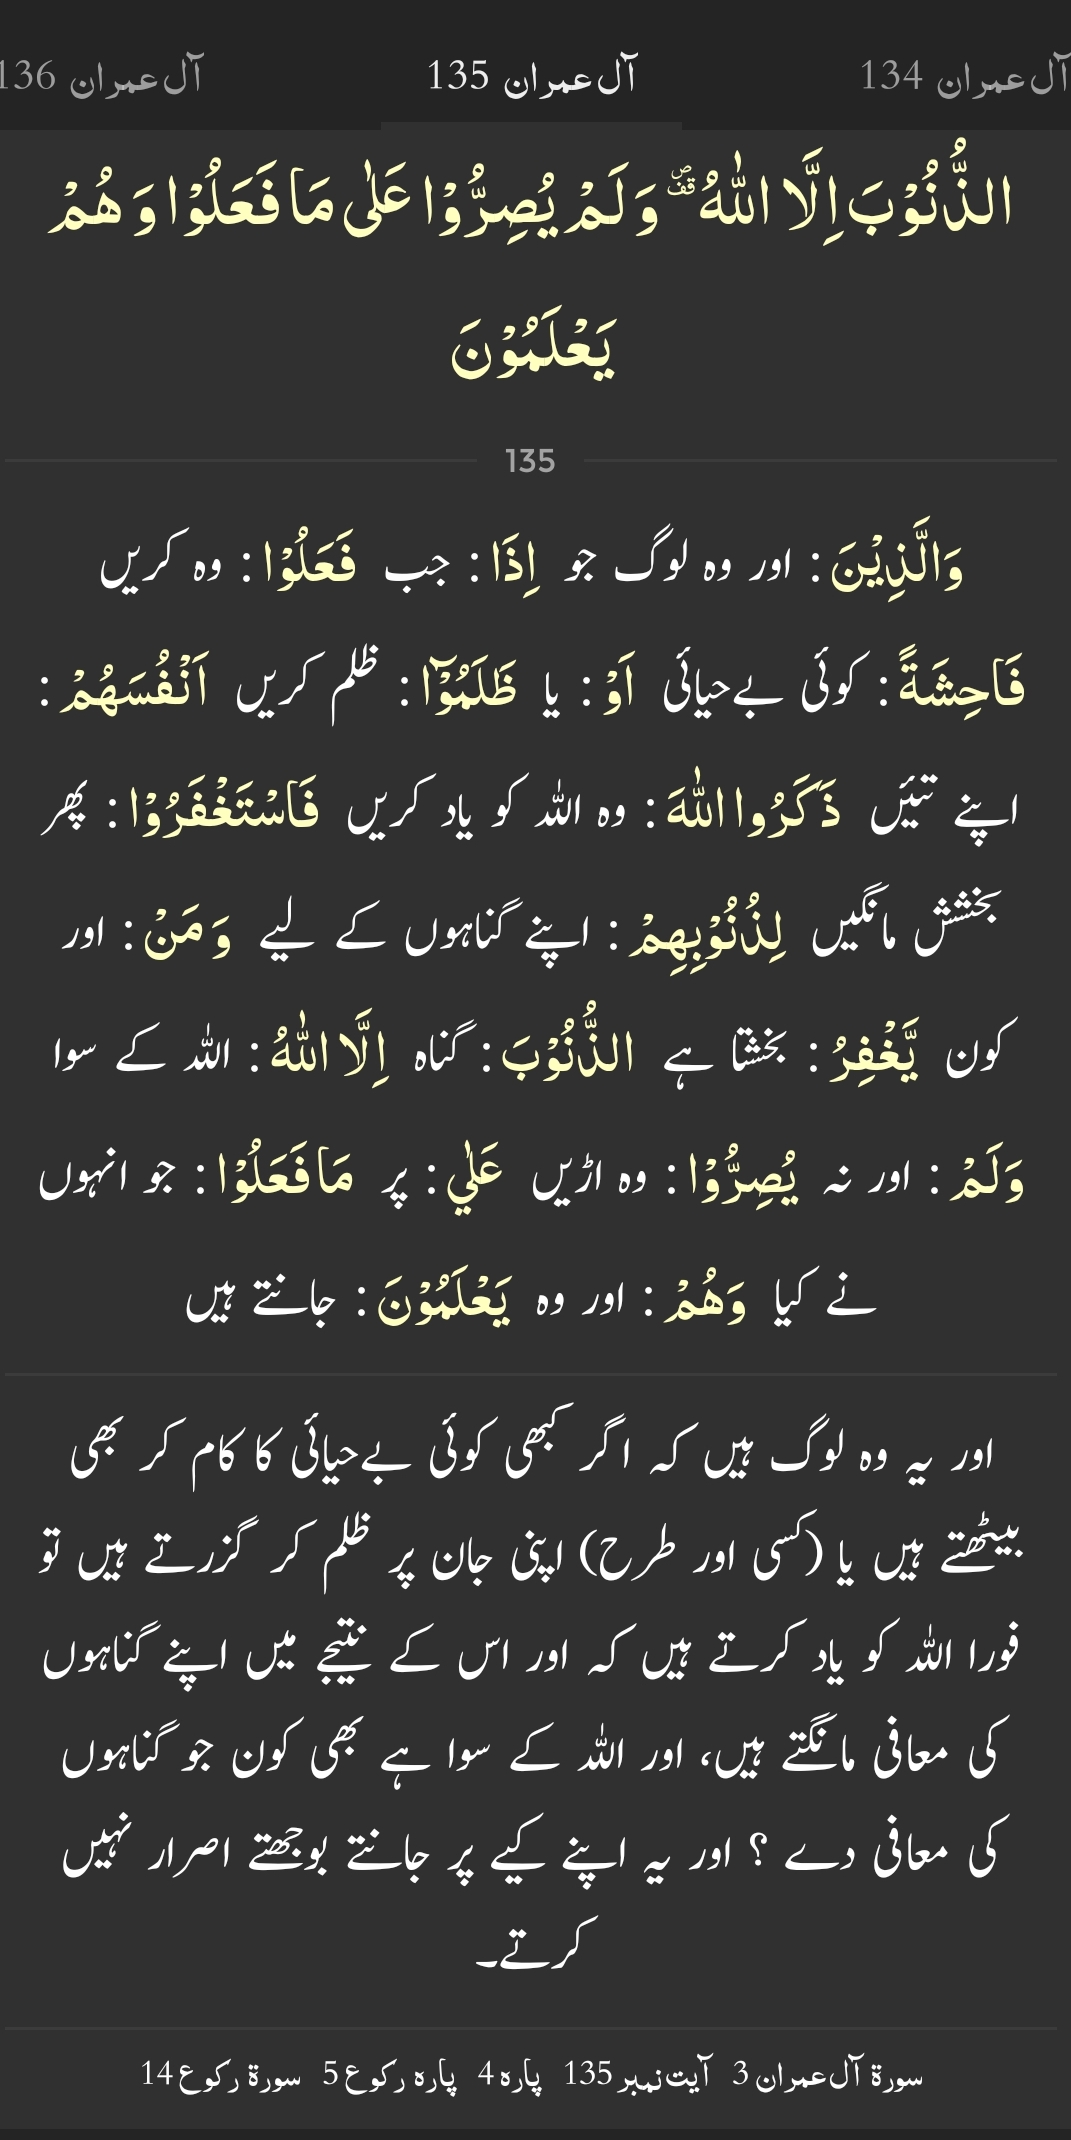 آل عمران 134 آل عمران 135 آل عمران 136
الذُّنُوْبَ اِلَّا اللّٰهُ ۪۫ وَ لَمْ یُصِرُّوْا عَلٰى مَا فَعَلُوْا وَ هُمْ
یَعْلَمُوْنَ
135
وَالَّذِيْنَ : اور وہ لوگ جو اِذَا : جب فَعَلُوْا : وہ کریں
فَاحِشَةً : کوئی بےحیائی اَوْ : یا ظَلَمُوْٓا : ظلم کریں اَنْفُسَھُمْ :
اپنے تئیں ذَكَرُوا اللّٰهَ : وہ اللہ کو یاد کریں فَاسْتَغْفَرُوْا : پھر
بخشش مانگیں لِذُنُوْبِھِمْ : اپنے گناہوں کے لیے وَ مَنْ : اور
کون يَّغْفِرُ : بخشتا ہے الذُّنُوْبَ : گناہ اِلَّا اللّٰهُ : اللہ کے سوا
وَلَمْ : اور نہ يُصِرُّوْا : وہ اڑیں عَلٰي : پر مَا فَعَلُوْا : جو انہوں
نے کیا وَھُمْ : اور وہ يَعْلَمُوْنَ : جانتے ہیں
اور یہ وہ لوگ ہیں کہ اگر کبھی کوئی بےحیائی کا کام کر بھی
بیٹھتے ہیں یا (کسی اور طرح) اپنی جان پر ظلم کر گزرتے ہیں تو
فورا اللہ کو یاد کرتے ہیں کہ اور اس کے نتیجے میں اپنے گناہوں
کی معافی مانگتے ہیں، اور اللہ کے سوا ہے بھی کون جو گناہوں
کی معافی دے ؟ اور یہ اپنے کیے پر جانتے بوجھتے اصرار نہیں
کرتے۔
سورۃ آل عمران 3 آیت نمبر 135 پارہ 4 پارہ رکوع 5 سورۃ رکوع 14